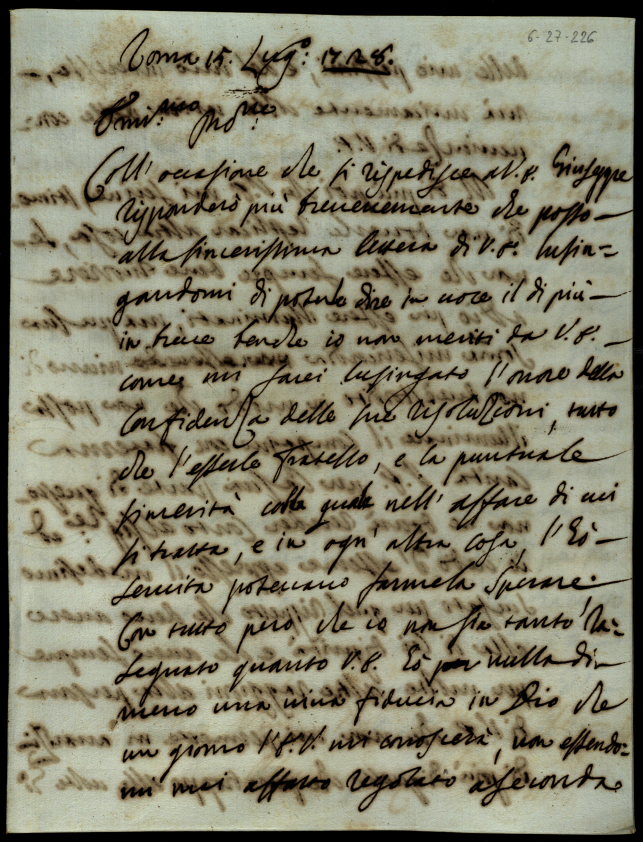 6-27-226
Roma 15. Lug.º 1728.
Em.mo Pñe
Coll' occasione che si rispedisce a V. E. Giuseppe
risponderò più brevemente che posso
alla sincerissima lettera di V. E. lusin=
gandomi di poterle dire in voce il di più
in breve benche io non meriti da V. E.
come mi sarei lusingato l'onore della
confidenza delle sue risoluzioni, tutto
che l'esserle fratello, e la puntuale
sincerità colla quale nell' affare di cui
si tratta, e in ogn' altra cosa, l' hò
servita potevano farmela sperare.
Con tutto però che io non sia tanto ra=
segnato quanto V. E. hò nulladi=
meno una viva fiducia in Dio che
un giorno l' E. V. mi conoscerà, non essendo=
mi mai affatto regolato a seconda